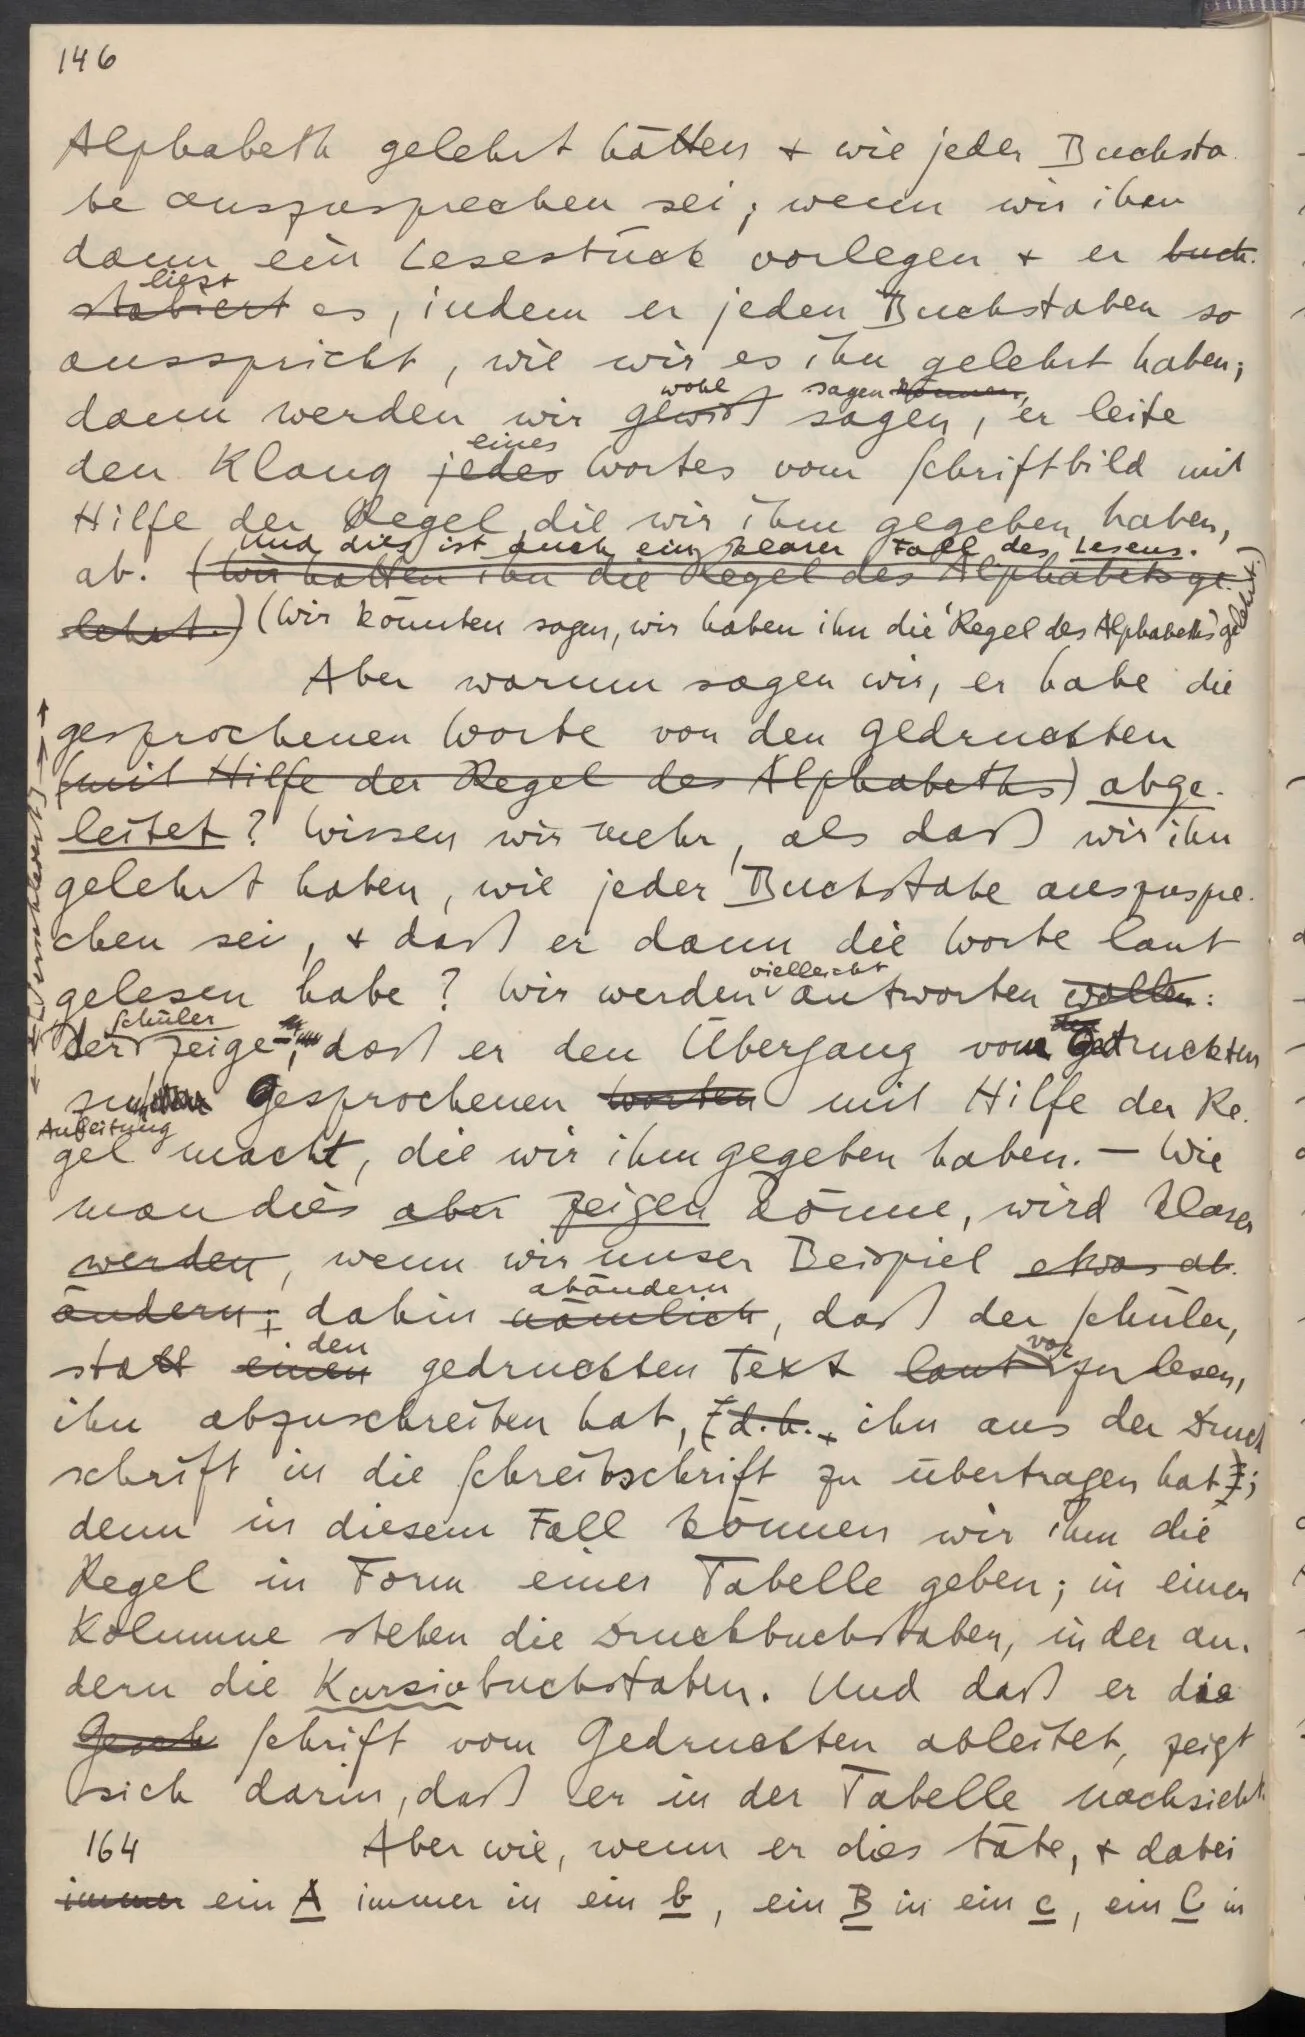 146
Alphabeth gelehrt hätten + wie jeder Buchsta-
be auszusprechen sei; wenn wir ihm
dann ein Lesestück vorlegen + er buch-
liest
stabiert es, indem er jeden Buchstaben so
ausspricht, wie wir es ihn gelehrt haben;
wohl sagen können,
dann werden wir gewiß sagen, er leite
eines
den Klang jedes Wortes vom Schriftbild mit
Hilfe der Regel, die wir ihm gegeben haben,
Und dies ist auch ein klarer Fall des Lesens.
ab. (Wir hatten ihn die Regel des Alphabets ge-
lehrt.) (Wir könnten sagen, wir haben ihn die 'Regel des Alphabeths' gelehrt.)
Aber warum sagen wir, er habe die
gesprochenen Worte von den gedruckten
(mit Hilfe der Regel des Alphabeths) abge-
leitet? Wissen wir mehr, als daß wir ihn
gelehrt haben, wie jeder Buchstabe auszuspre-
chen sei, + daß er dann die Worte laut
vielleicht
gelesen habe? Wir werden antworten wollen:
Schüler
der zeige, daß er den Übergang vom Gedruckten
zum Gesprochenen Worten mit Hilfe der Re-
Anleitung
gel macht, die wir ihm gegeben haben. – Wie
man dies aber zeigen könne, wird klarer
werden, wenn wir unser Beispiel etwas ab-
abändern
ändern; dahin nämlich, daß der Schüler,
den vor
statt einen gedruckten Text laut zu lesen,
ihn abzuschreiben hat, (d.h. ihn aus der Druck
schrift in die Schreibschrift zu übertragen hat);
denn in diesem Fall können wir ihm die
Regel in Form einer Tabelle geben; in einer
Kolumne stehen die Druckbuchstaben, in der an-
dern die Kursivbuchstaben. Und daß er die
Gesch Schrift vom Gedruckten ableitet, zeigt
sich darin, daß er in der Tabelle nachsieht
164 Aber wie, wenn er dies täte, + dabei
immer ein A immer in ein b, ein B in ein c, ein C in